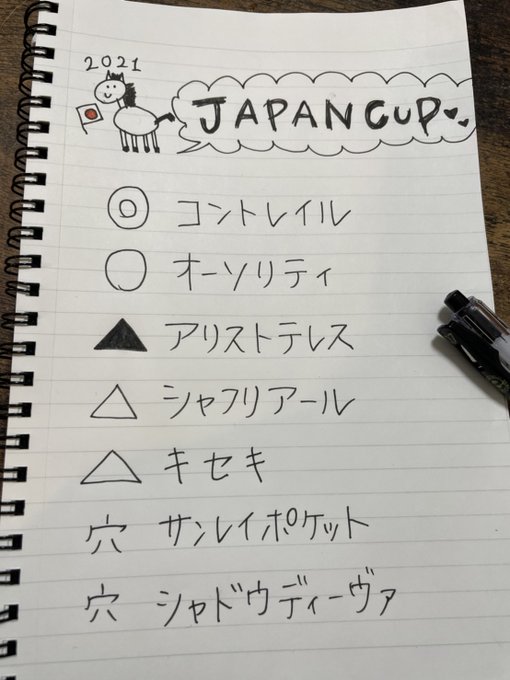 2021
JAPAN CUP
◎ コントレイル
○ オーソリティ
▲ アリストテレス
△ シャフリアール
△ キセキ
穴 サンレイポケット
穴 シャドウディーヴァ